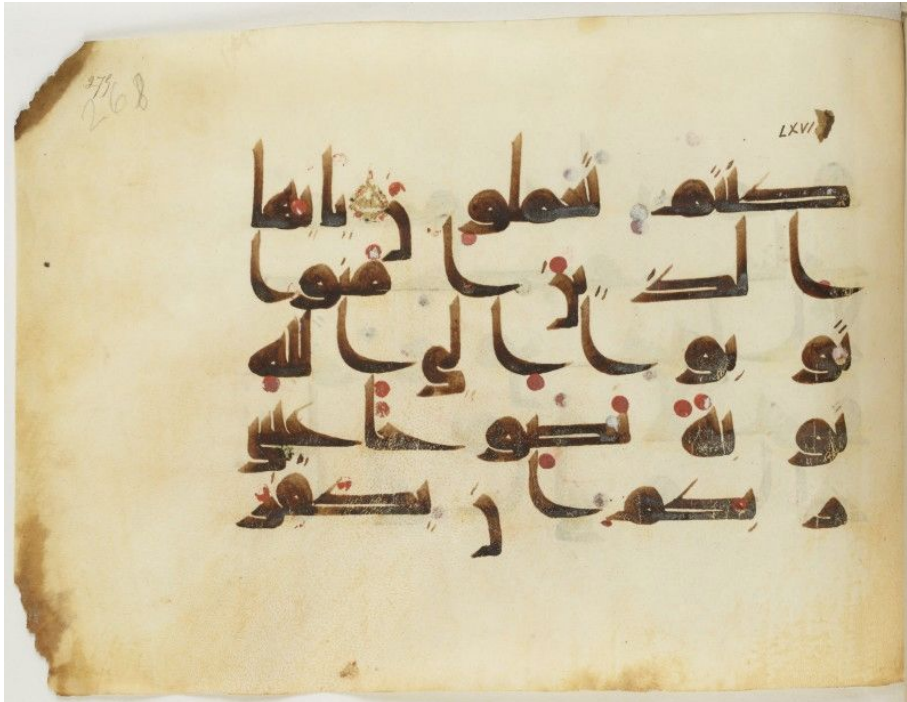 268
LXVI
كنتم تعملون يايها
الذين امنوا
توبوا الى الله
توبة نصوحا عسى
ربكم ان يكفر